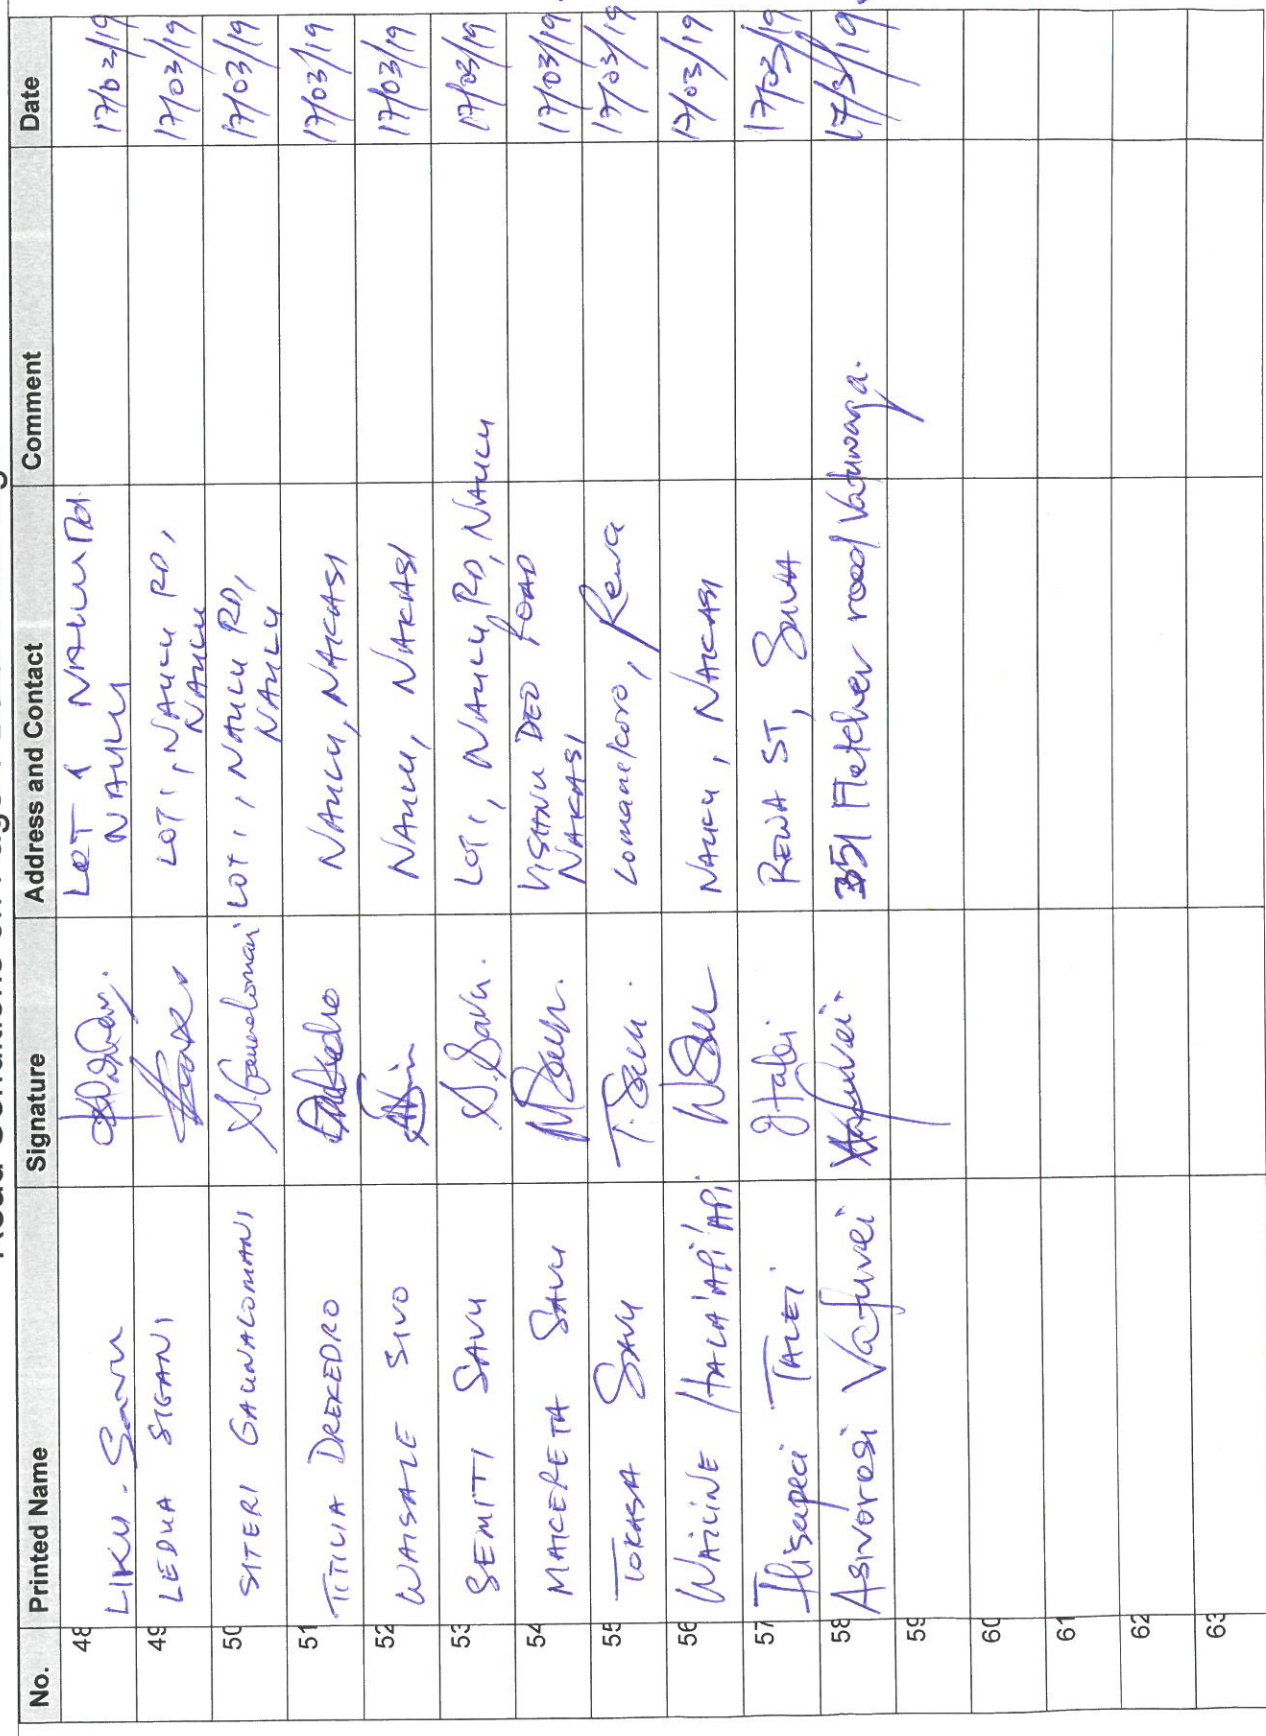 No. Printed Name Signature Address and Contact Comment Date
48 LIKU. Savu LOT 1 NAULU Rd. 17/03/19
NAULU
49 LEDUA SIGANI LOT 1, NAULU RD, 17/03/19
NAULU
50 SITERI GAUNALOMANI S. Gaunalomani LOT 1, NAULU RD, 17/03/19
NAULU
51 TITILIA DREKEDRO NAULU, NAKASI 17/03/19
52 WAISALE SIVO NAULU, NAKASI 17/03/19
53 SEMITI SAVU S. Savu. LOT 1, NAULU RD, NAULU 17/03/19
54 MAKERETA SAVU VISHNU DEO ROAD 17/03/19
NAKASI
55 TOKASA SAVU T. Savu. Lomanikoro, Rewa 17/03/19
56 WAILINE HALA'API'API NAULU, NAKASI 17/03/19
57 Ilisapeci TALEI Italei REWA ST, SUVA 17/03/19
58 Asivorosi Vafurei 351 Fletcher road Vatuwaqa. 17/3/19
59
60
61
62
63